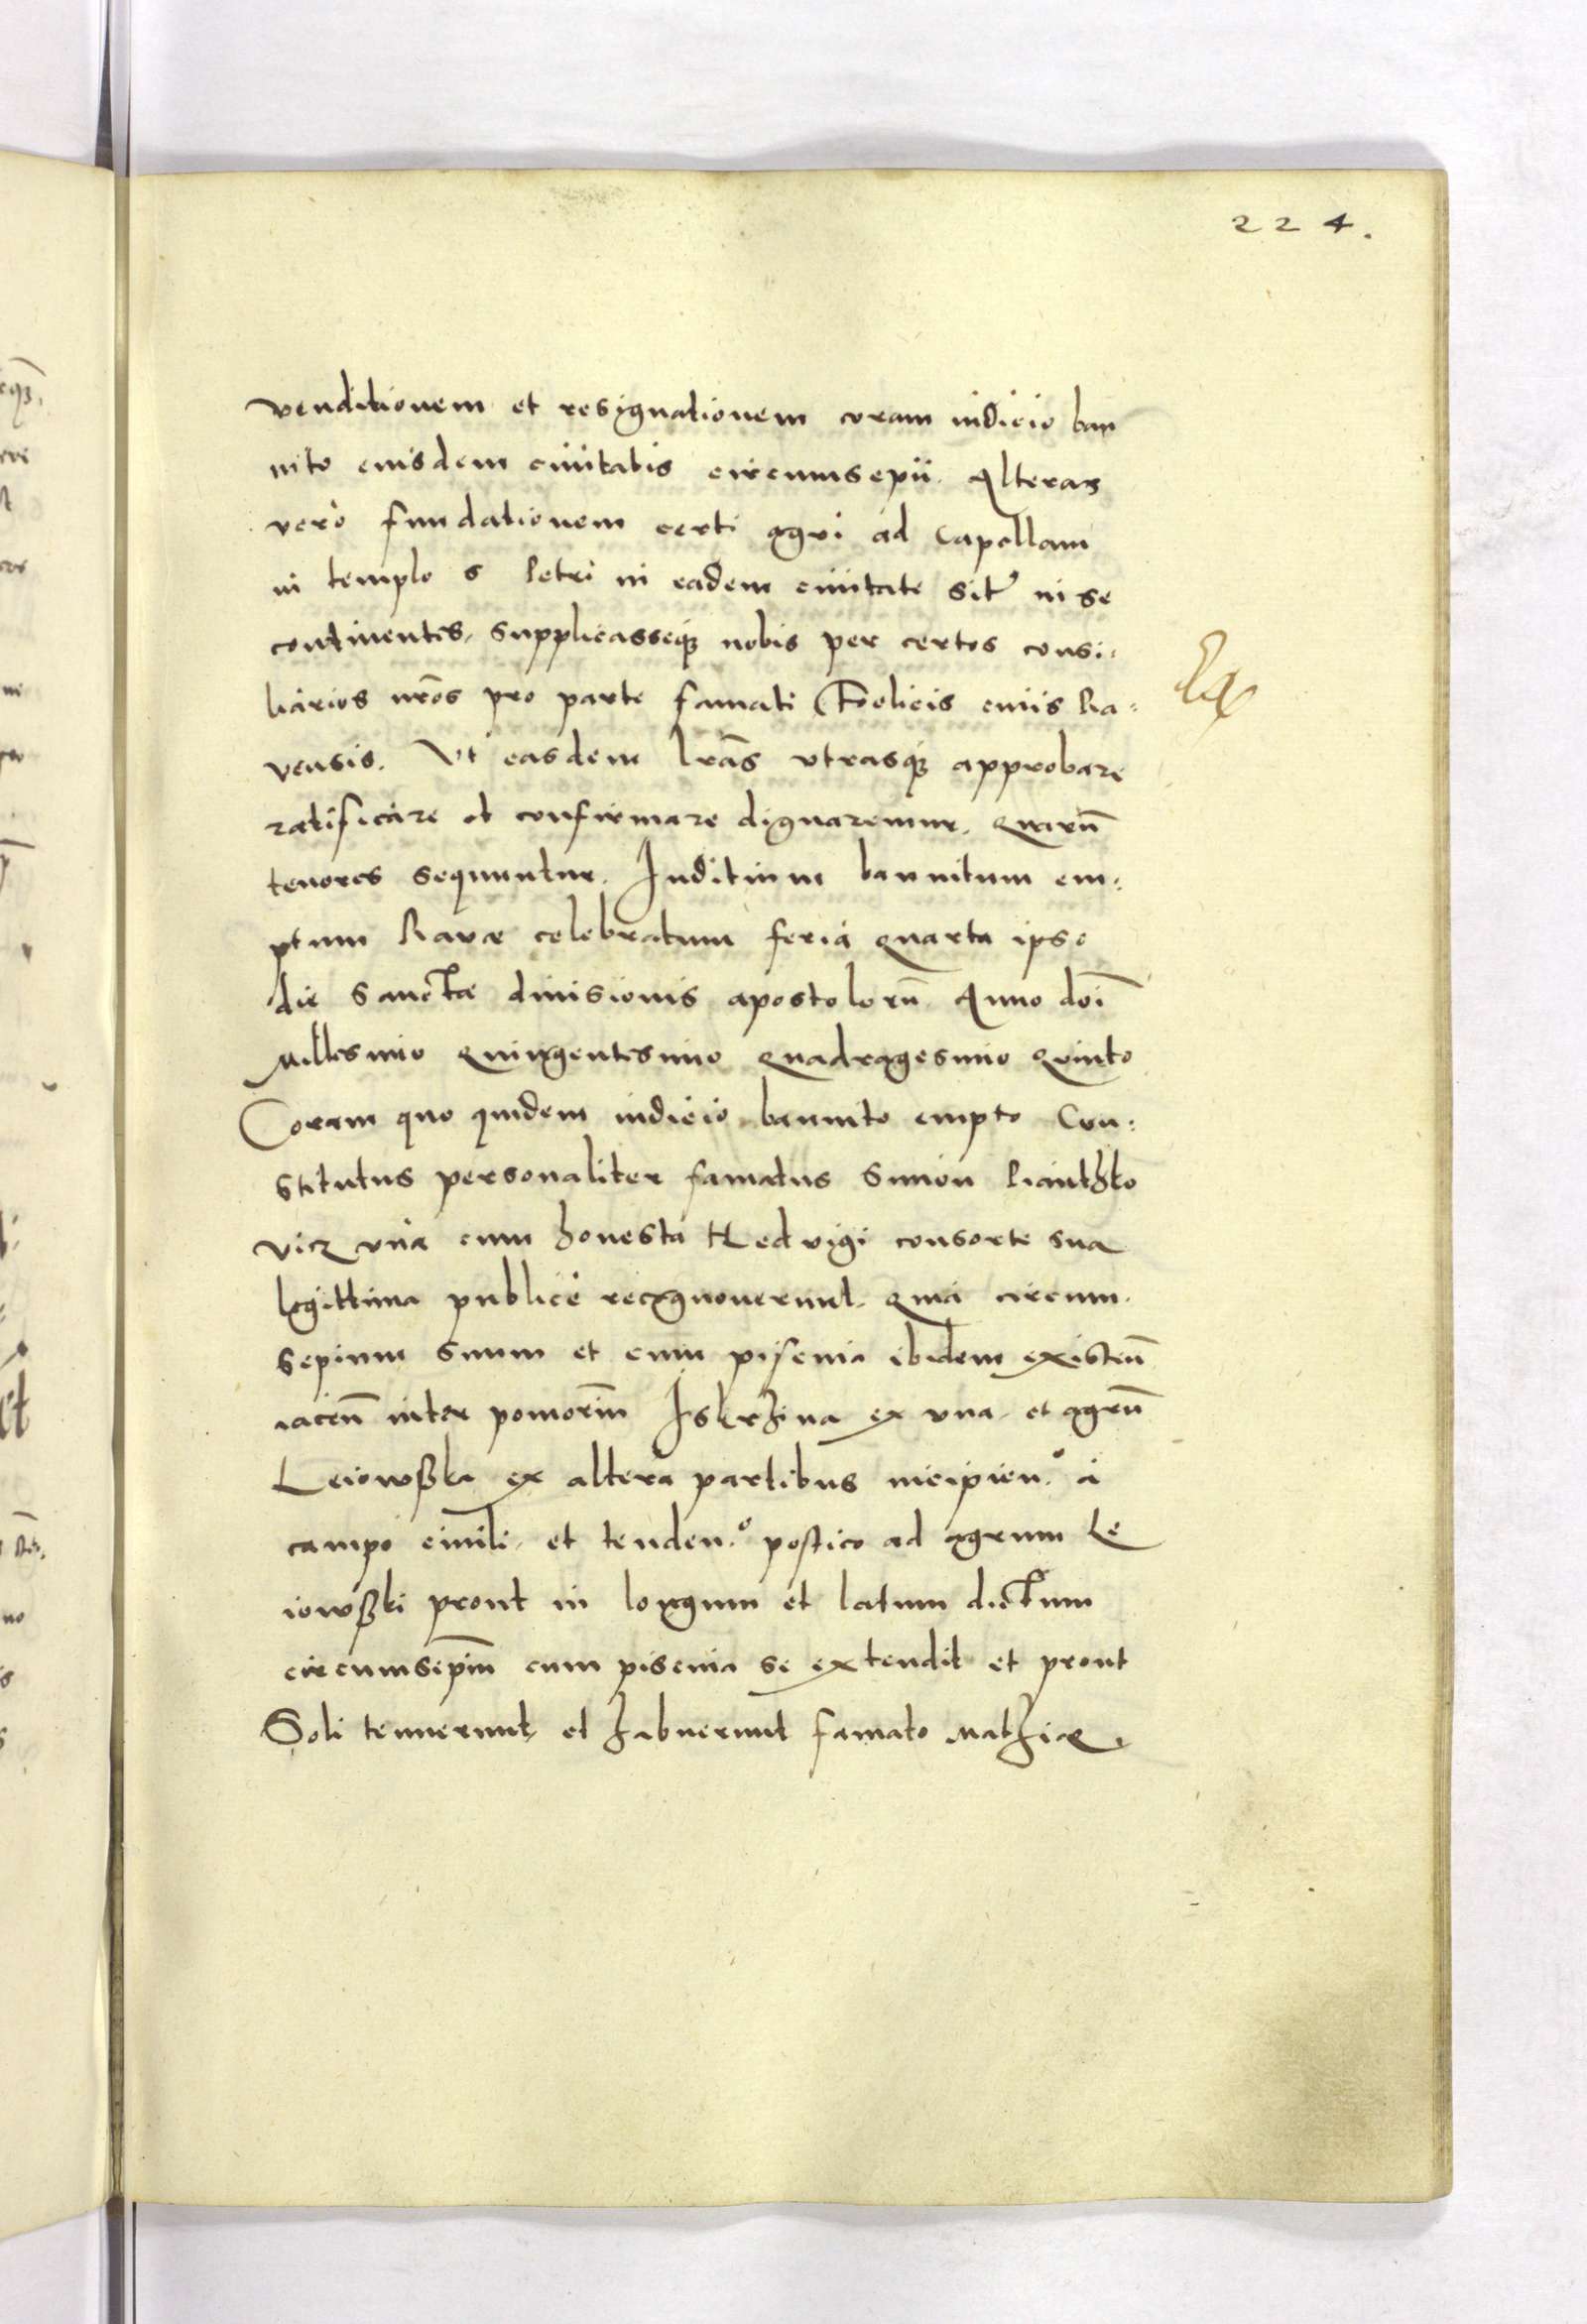 224.
venditionem et resignationem coram iudicio ban
nito eiusdem ciuitatis circumsepii. Alteras
vero fundationem certi agri ad Capellam
in templo S Petri in eadem ciuitate sit in se
continentes, supplicasseq3 nobis per certos consi:
liarios nr̃os pro parte famati Foelicis ciuis Ra:
vensis. Vt easdem lrãs vtrasq3 approbare
ratificare et confirmare dignaremur, quarũ
tenores sequuntur. Juditium bannitum em:
ptum Ravæ celebratum feria quarta ipso
die Sanctæ diuisionis apostolorũ Anno doĩ
Millesimo Quingentesimo quadragesimo quinto
Coram quo quidem iudicio bannito empto Con:
stitutus personaliter famatus Simon
vicz vna cum honesta Hedvigi consorte sua
legittima publice recognouerunt, quia circum
sepium suum et cum piscina ibidem existeñ
iaceñ inter pomoriũ Iskrzina ex vna, et agrũ
Leiowski ex altera partibus incipien.º à
campo ciuili, et tenden.º postico ad agrum Le
iowski prout in longum et latum dictum
circumsepiũ cum piscina se extendit et prout
Soli tenuerunt, et habuerunt famato Mathiæ.